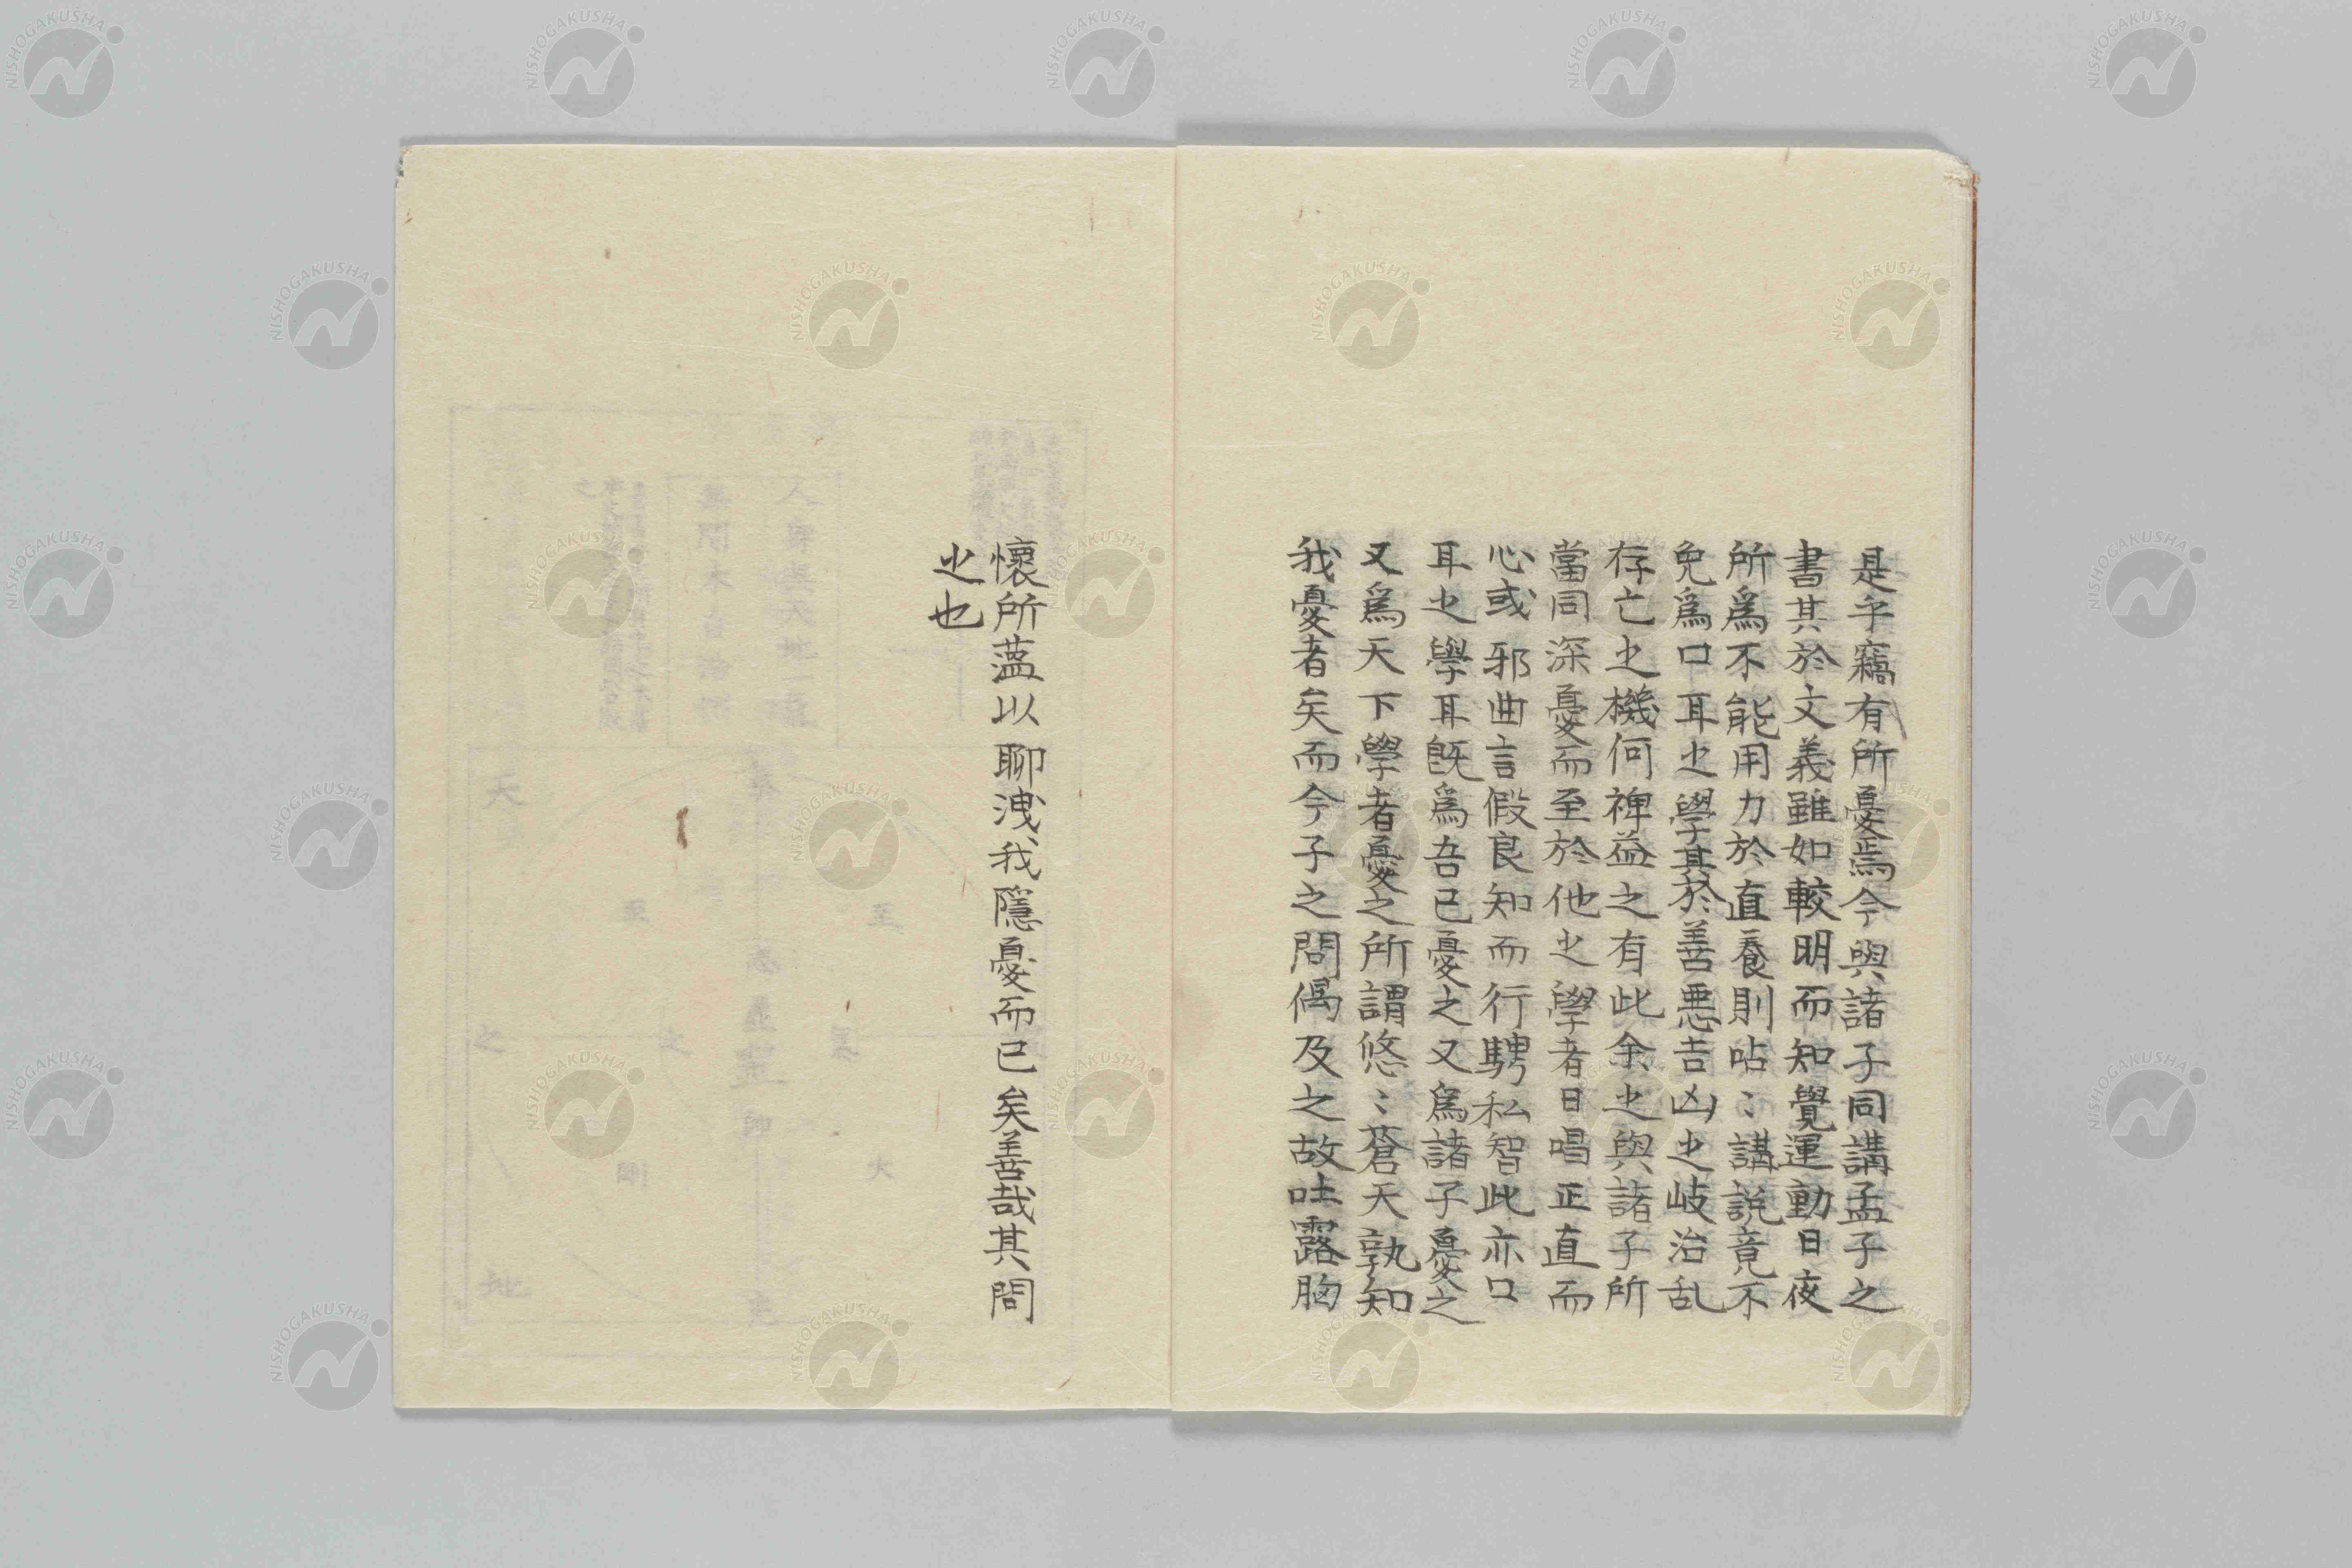 是乎竊有所憂焉今與諸子同講孟子之
書其於文義雖如較明而知覺運動日夜
所爲不能用力於直養則呫〻講説竟不
免爲口耳之學其於善悪吉凶之岐治乱
存亡之機何裨益之有此余之與諸子所
當同深憂而至於他之學者日唱正直而
心或邪曲言假良知而行騁私智此亦口
耳之學耳旣爲吾已憂之又爲諸子憂之
又爲天下學者憂之所謂悠〻蒼天孰知
我憂者矣而今子之問偈及之故吐露胸
懷所薀以聊洩我隱憂而已矣善哉其問
之也
NISHOGAKUSHA